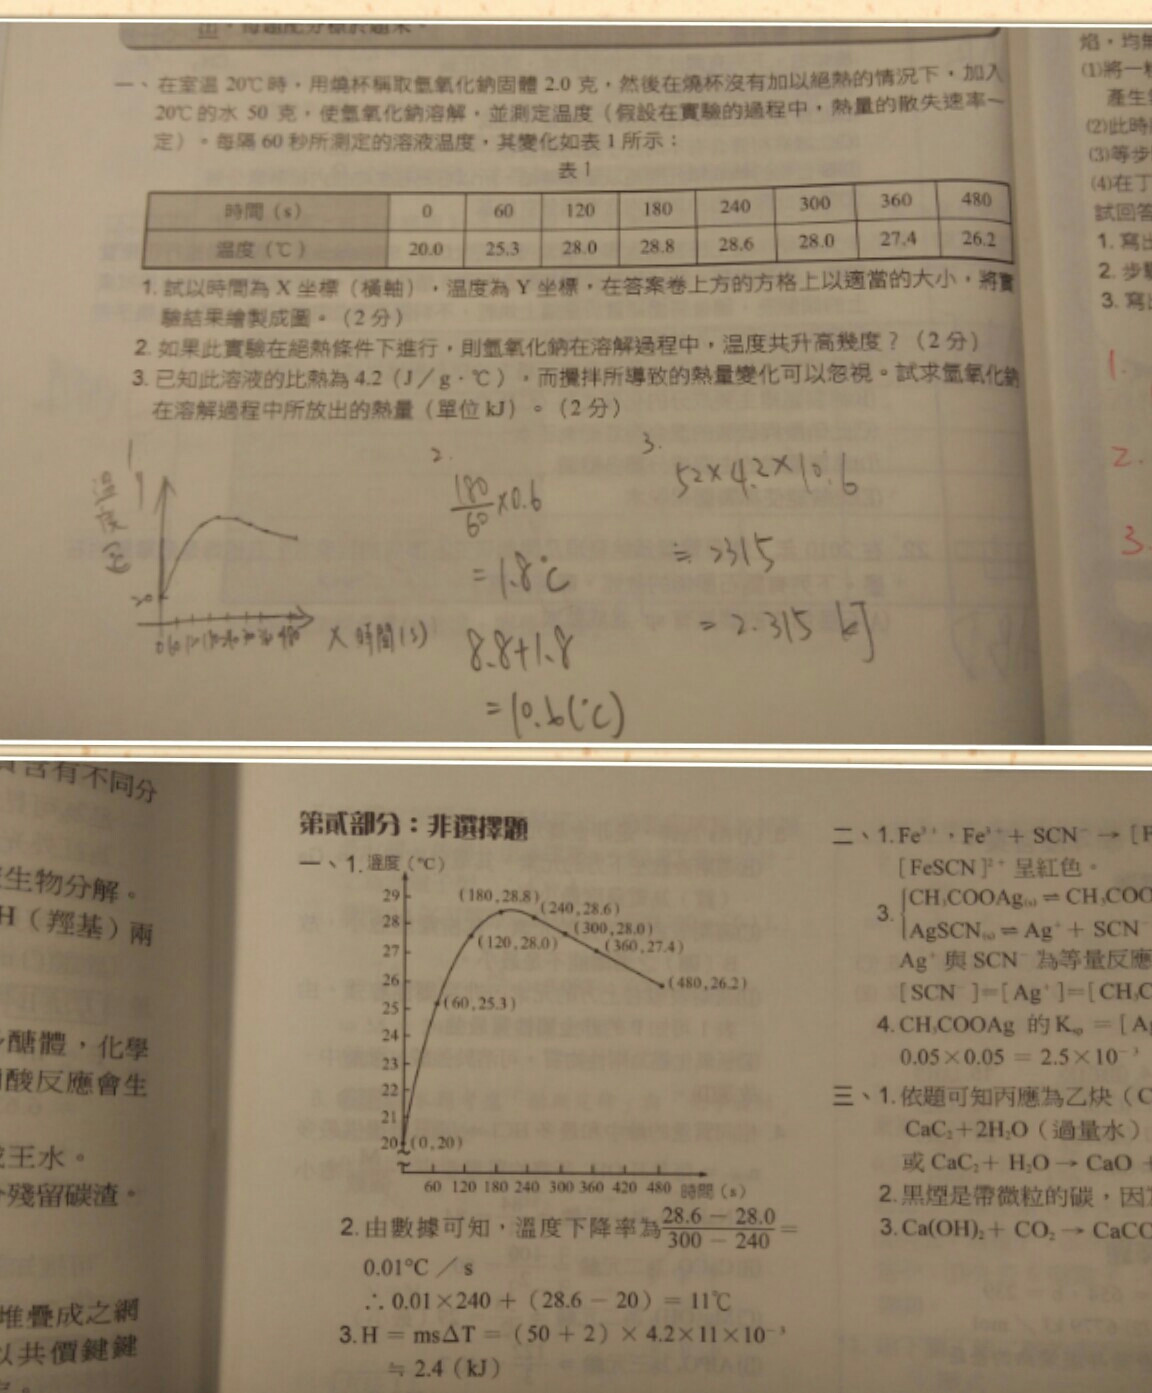 一、在室温 20℃時，用燒杯稱取氫氧化鈉固體 2.0 克，然後在燒杯沒有加以絕熱的情況下，加入
20℃的水 50 克，使氫氧化鈉溶解，並測定温度（假設在實驗的過程中，熱量的散失速率一
定）。每隔 60 秒所測定的溶液温度，其變化如表 1 所示：
表 1
時間（s） 0 60 120 180 240 300 360 480
温度（℃） 20.0 25.3 28.0 28.8 28.6 28.0 27.4 26.2
1. 試以時間為 X 坐標（橫軸），温度為 Y 坐標，在答案卷上方的方格上以適當的大小，將實
驗結果繪製成圖。（2 分）
2. 如果此實驗在絕熱條件下進行，則氫氧化鈉在溶解過程中，温度共升高幾度？（2 分）
3. 已知此溶液的比熱為 4.2（J／g．℃），而攪拌所導致的熱量變化可以忽視。試求氫氧化鈉
在溶解過程中所放出的熱量（單位 kJ）。（2 分）
焰，均
(1)將一
產生
(2)此時
(3)等步
(4)在丁
試回答
1. 寫出
2. 步
3. 寫出
1.
2.
3.
1
温度
20
X 時間(s)
2.
180/60 ×0.6
= 1.8℃
8.8+1.8
= 10.6(℃)
3.
52×4.2×10.6
≒ 2315
= 2.315 kJ
含有不同分
生物分解。
H（羥基）兩
醣體，化學
酸反應會生
王水。
殘留碳渣。
堆疊成之網
以共價鍵鍵
第貳部分：非選擇題
一、1. 溫度（℃）
29
28
27
26
25
24
23
22
21
20
(180,28.8)
(240,28.6)
(300,28.0)
(120,28.0)
(360,27.4)
(480,26.2)
(60,25.3)
(0,20)
60 120 180 240 300 360 420 480 時間（s）
2. 由數據可知，溫度下降率為 28.6 − 28.0 / 300 − 240 =
0.01℃／s
∴ 0.01×240 +（28.6 − 20）= 11℃
3. H = msΔT =（50 + 2）× 4.2×11×10⁻³
≒ 2.4（kJ）
二、1. Fe³⁺，Fe³⁺ + SCN⁻ → [F
[FeSCN]²⁺ 呈紅色。
3. CH₃COOAg₍ₛ₎ ⇌ CH₃COO
AgSCN₍ₛ₎ ⇌ Ag⁺ + SCN⁻
Ag⁺ 與 SCN⁻ 為等量反應
[SCN⁻]=[Ag⁺]=[CH₃C
4. CH₃COOAg 的 Ksp = [A
0.05×0.05 = 2.5×10⁻³
三、1. 依題可知丙應為乙炔（C
CaC₂+2H₂O（過量水）
或 CaC₂+ H₂O → CaO +
2. 黑煙是帶微粒的碳，因
3. Ca(OH)₂+ CO₂ → CaCO